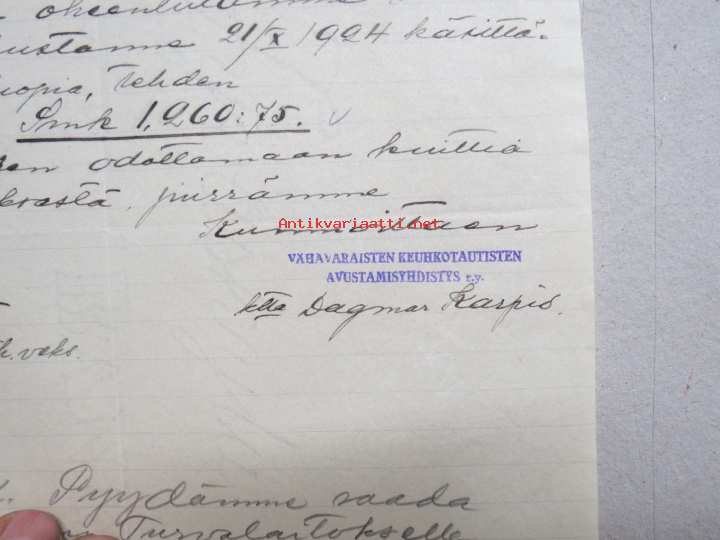 oheenliittämme
21/X 1924 käsittä-
kopia, tehden
Smk 1,260:75.
odottamaan kuittia
jäämme
Kunnioittaen
Antikvariaatti.net
VÄHÄVARAISTEN KEUHKOTAUTISTEN
AVUSTAMISYHDISTYS r.y.
Dagmar Karpio.
k. veks.
Pyydämme saada
Turvalaitokselle